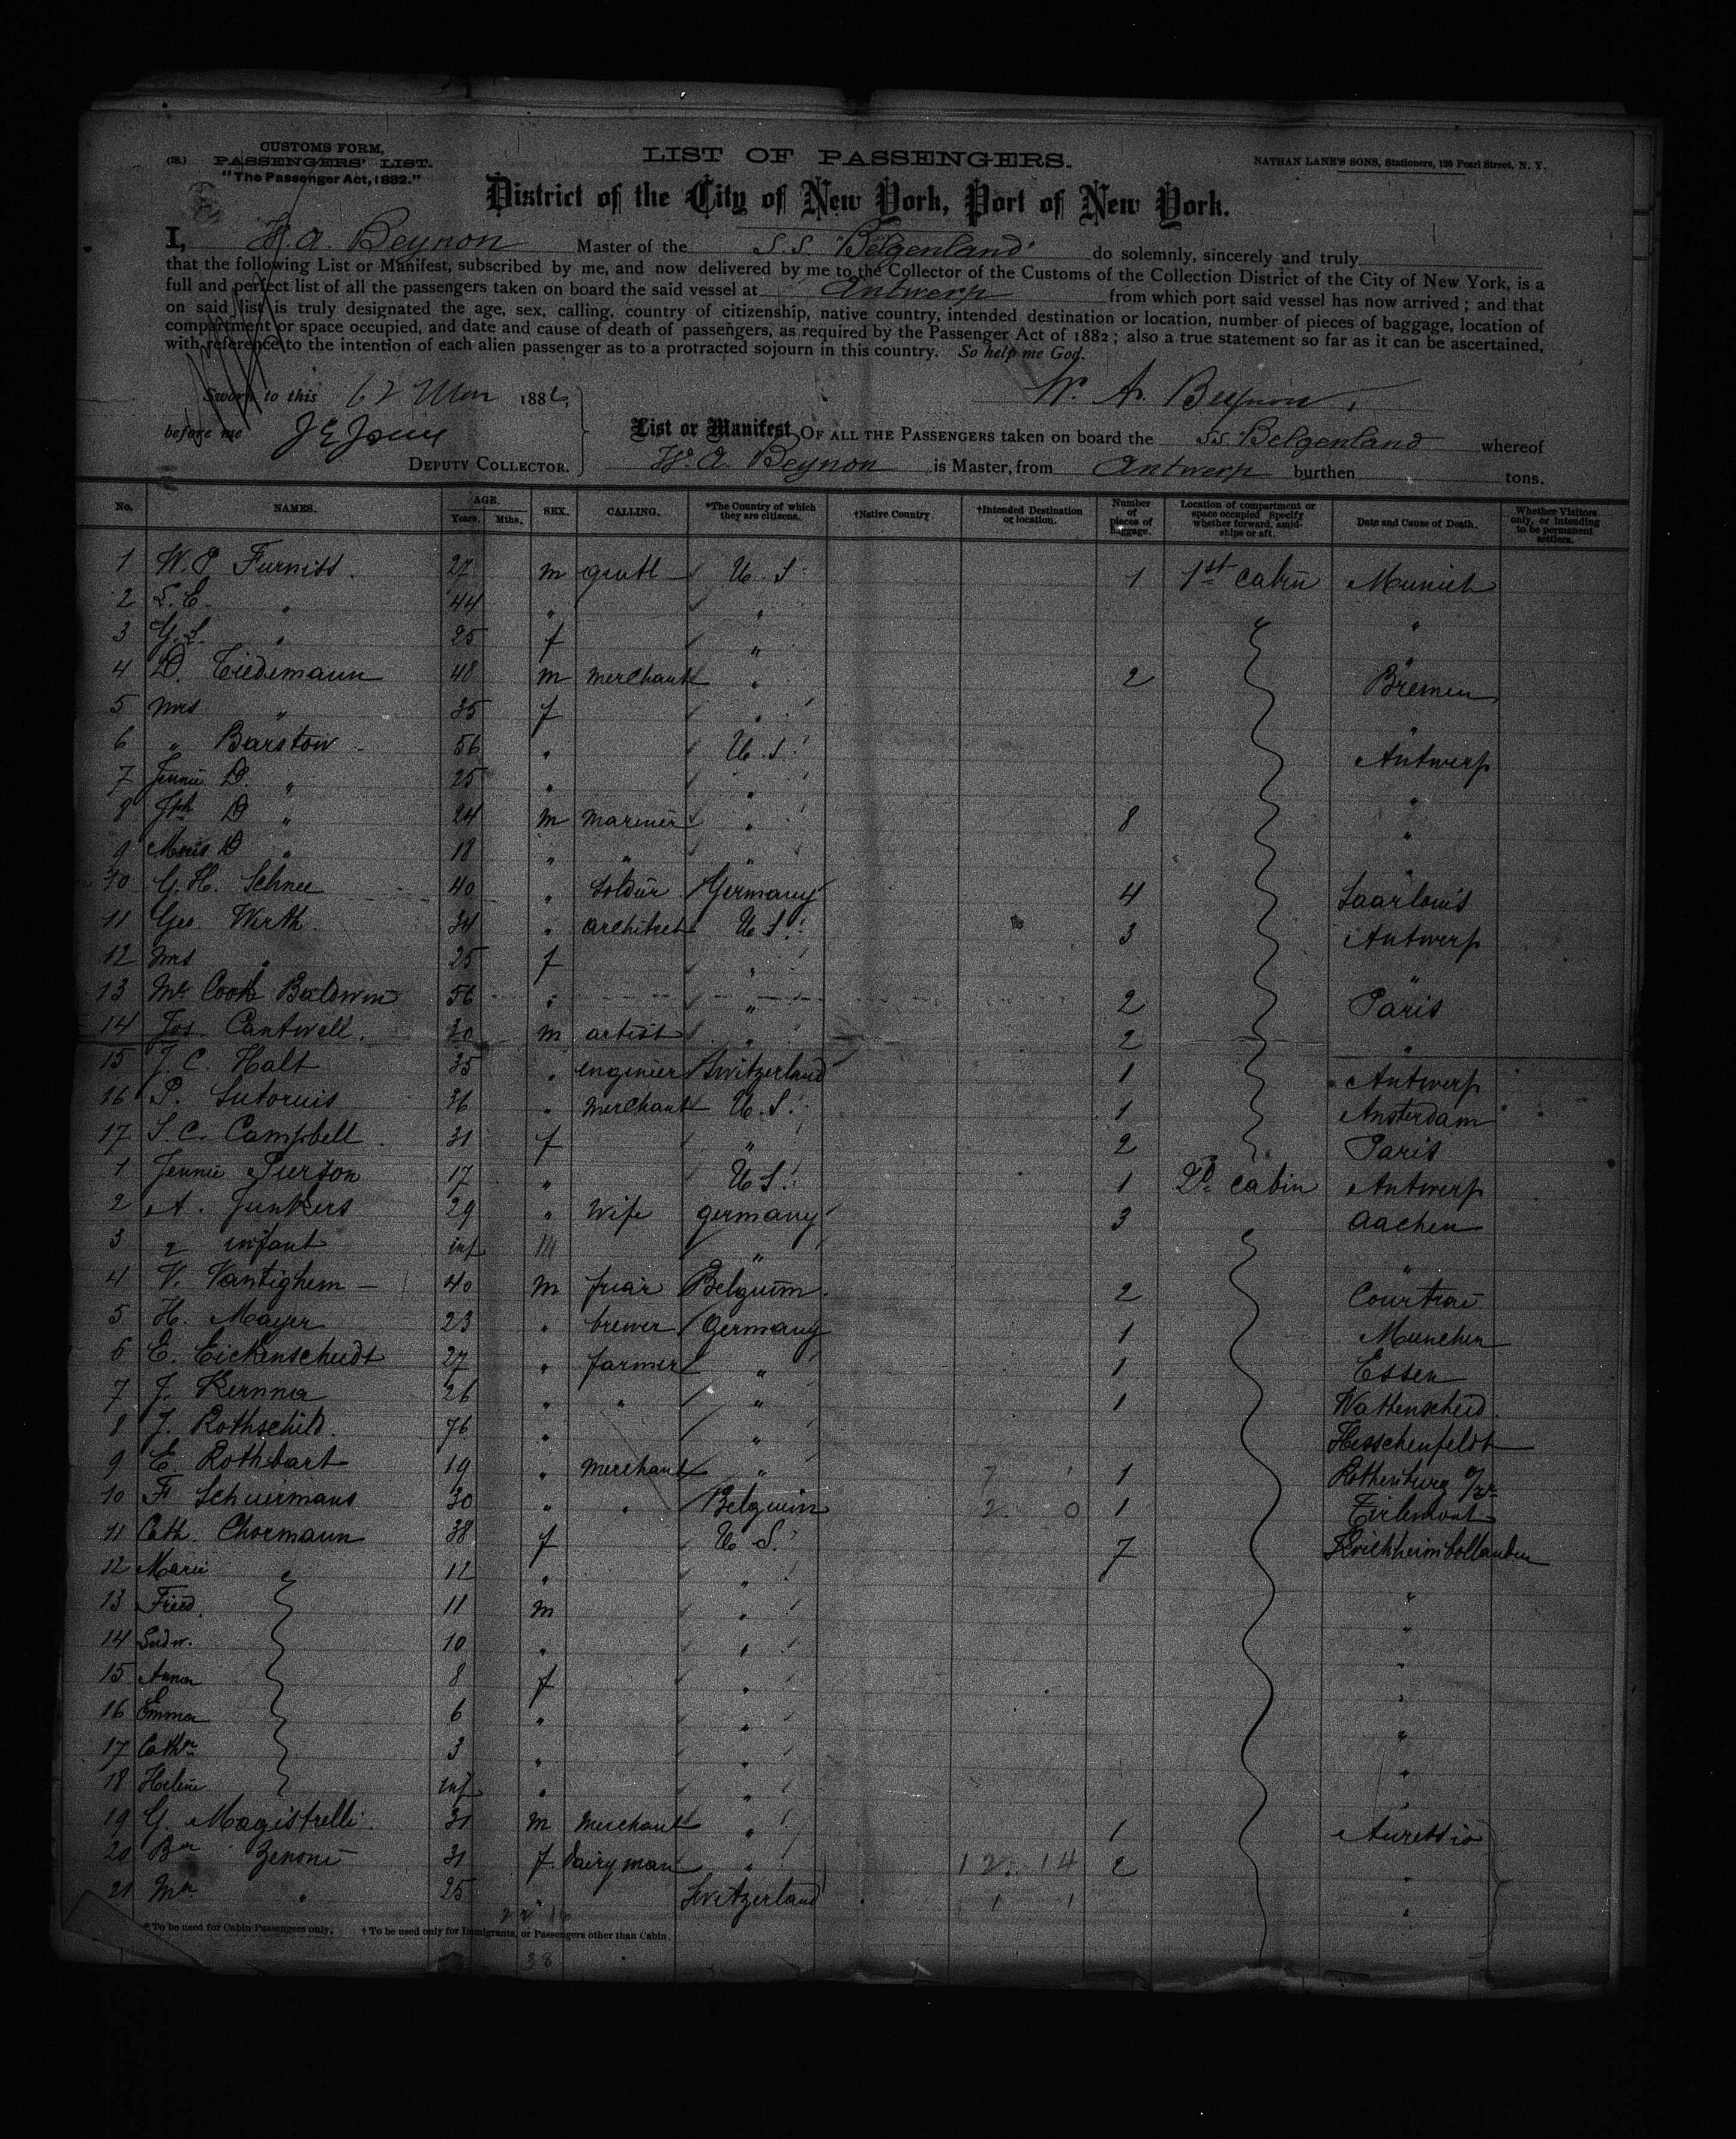 CUSTOMS FORM,
(B.) PASSENGERS' LIST.
"The Passenger Act, 1882."
LIST OF PASSENGERS.
NATHAN LANE'S SONS, Stationers, 126 Pearl Street, N. Y.
District of the City of New York, Port of New York.
I, W. A. Beynon Master of the S.S. "Belgenland" do solemnly, sincerely and truly
that the following List or Manifest, subscribed by me, and now delivered by me to the Collector of the Customs of the Collection District of the City of New York, is a
full and perfect list of all the passengers taken on board the said vessel at Antwerp from which port said vessel has now arrived; and that
on said list is truly designated the age, sex, calling, country of citizenship, native country, intended destination or location, number of pieces of baggage, location of
compartment or space occupied, and date and cause of death of passengers, as required by the Passenger Act of 1882; also a true statement so far as it can be ascertained,
with reference to the intention of each alien passenger as to a protracted sojourn in this country. So help me God.
Sworn to this 12 Mar 1886, W. A. Beynon.
before me
List or Manifest OF ALL THE PASSENGERS taken on board the S.S. Belgenland whereof
DEPUTY COLLECTOR. W. A. Beynon is Master, from Antwerp burthen tons.
No. NAMES. AGE. Years. Mths. SEX. CALLING. *The Country of which they are citizens. †Native Country. †Intended Destination or location. Number of pieces of baggage. Location of compartment or space occupied Specify whether forward, amidships or aft. Date and Cause of Death. Whether Visitors only, or intending to be permanent settlers.
1 W. P. Furniss. 27 m gentl U. S. 1 1st cabin Munich
2 L. C. " 44 " " "
3 G. S. " 25 f " "
4 D. Tiedemann 48 m merchant " 2 Bremen
5 Mrs " 35 f " "
6 " Barstow 56 " U. S. Antwerp
7 Jennie D. " 25 " " "
8 Jph D " 24 m mariner " 8 "
9 D " 18 " " " "
10 G. H. Schnee 40 " soldier Germany 4 Saarlouis
11 Geo. Wirth 34 " architect U. S. 3 Antwerp
12 Mrs " 25 f " "
13 Mrs Cook Baldwin 56 " " 2 Paris
14 Jos. Cantwell. 30 m artist " 2 "
15 J. C. Halt 35 " engineer Switzerland 1 Antwerp
16 P. Sutorius 36 " merchant U. S. 1 Amsterdam
17 S. C. Campbell 31 f " 2 Paris
1 Jennie Pierson 17 " U S. 1 2d cabin Antwerp
2 A. Junkers 29 " wife Germany 3 Aachen
3 " infant inf " "
4 V. Vantighem 40 m friar Belgium 2 Courtrai
5 H. Mayer 23 " brewer Germany 1 Munchen
6 E. Eickenscheidt 27 " farmer " 1 Essen
7 J. Kernna 26 " " " 1 Wattenscheid
8 J. Rothschild. 76 " " Hesschenfeldt
9 E Rothbart 19 " merchant " 1 Rothenburg
10 F Schuermans 30 " " Belguim 1 Tirlemont
11 Cath. Chormann 38 f U S. 7 Kirchheimbollanden
12 Marie 12 " " "
13 Fried. 11 m " "
14 Ludw. 10 " " "
15 Anna 8 f " "
16 Emma 6 " " "
17 Cathr 3 " " "
18 Helene inf " " "
19 G. Magistrelli 31 m merchant " 1 Auressio
20 Zenoni 31 f. Dairyman " 12. 14 2 "
21 " 25 " Switzerland 1 1 "
* To be used for Cabin Passengers only. † To be used only for Immigrants, or Passengers other than Cabin.
38